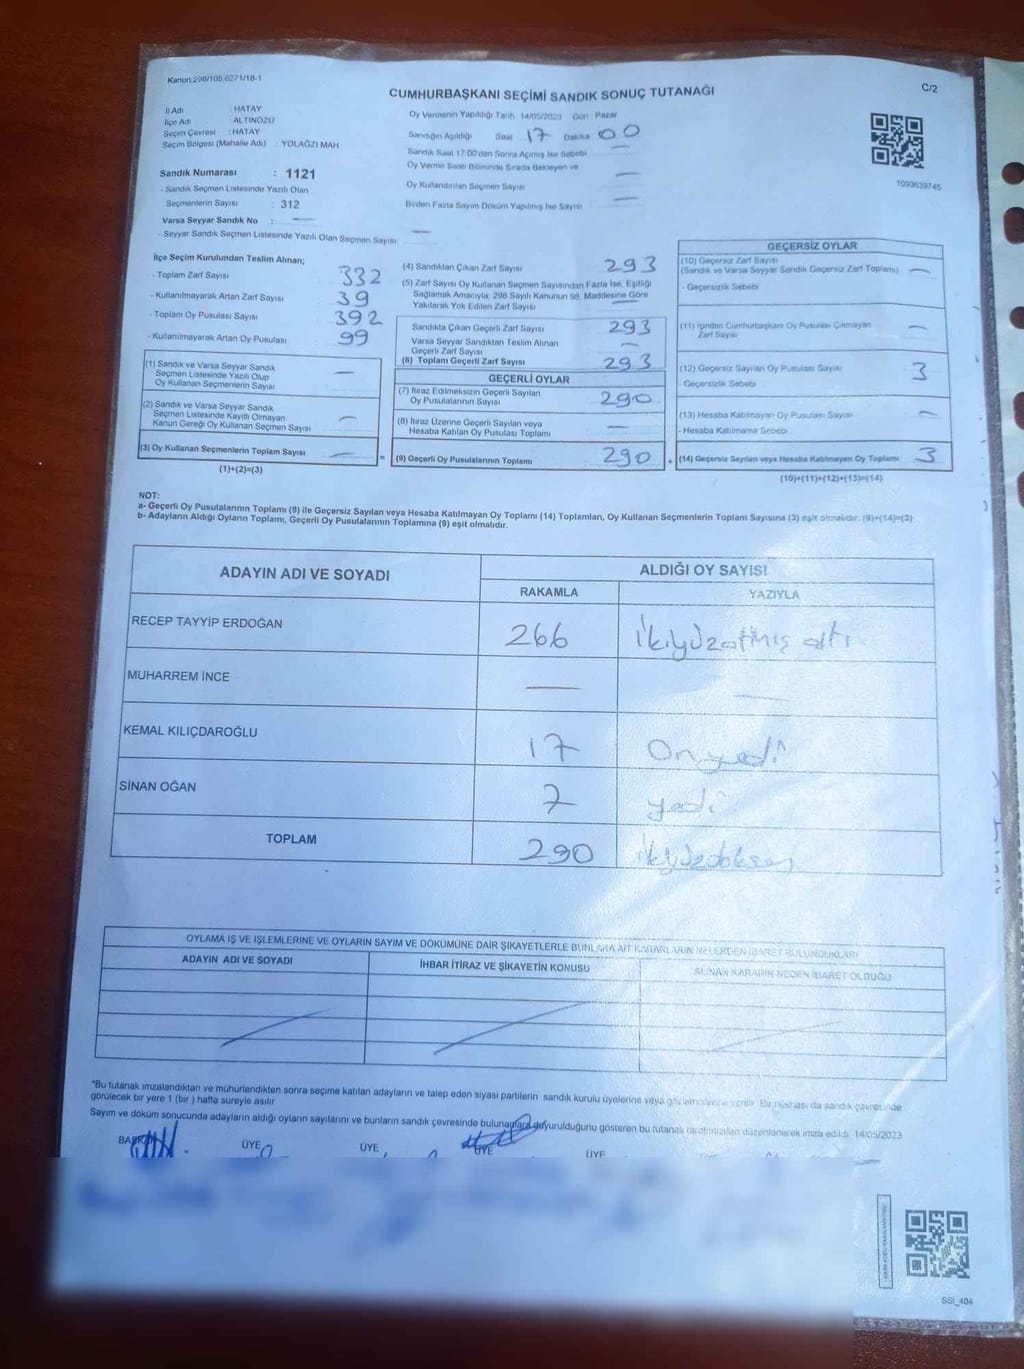 Kanun:298/105,6271/18-1
C/2
CUMHURBAŞKANI SEÇİMİ SANDIK SONUÇ TUTANAĞI
İl Adı : HATAY
İlçe Adı : ALTINÖZÜ
Seçim Çevresi : HATAY
Seçim Bölgesi (Mahalle Adı) : YOLAĞZI MAH
Sandık Numarası : 1121
- Sandık Seçmen Listesinde Yazılı Olan
Seçmenlerin Sayısı : 312
Varsa Seyyar Sandık No : —
- Seyyar Sandık Seçmen Listesinde Yazılı Olan Seçmen Sayısı —
Oy Vermenin Yapıldığı Tarih 14/05/2023 Gün Pazar
Sandığın Açıldığı Saat 17 Dakika 00
Sandık Saat 17:00'den Sonra Açılmış İse Sebebi —
Oy Verme Saati Bitiminde Sırada Bekleyen ve
Oy Kullandırılan Seçmen Sayısı —
Birden Fazla Sayım Döküm Yapılmış İse Sayısı —
1093639745
İlçe Seçim Kurulundan Teslim Alınan;
- Toplam Zarf Sayısı 332
- Kullanılmayarak Artan Zarf Sayısı 39
- Toplam Oy Pusulası Sayısı 392
- Kullanılmayarak Artan Oy Pusulası 99
(1) Sandık ve Varsa Seyyar Sandık
Seçmen Listesinde Yazılı Olup
Oy Kullanan Seçmenlerin Sayısı —
(2) Sandık ve Varsa Seyyar Sandık
Seçmen Listesinde Kayıtlı Olmayan
Kanun Gereği Oy Kullanan Seçmen Sayısı —
(3) Oy Kullanan Seçmenlerin Toplam Sayısı —
(1)+(2)=(3)
(4) Sandıktan Çıkan Zarf Sayısı 293
(5) Zarf Sayısı Oy Kullanan Seçmen Sayısından Fazla İse, Eşitliği
Sağlamak Amacıyla; 298 Sayılı Kanunun 98. Maddesine Göre
Yakılarak Yok Edilen Zarf Sayısı
Sandıkta Çıkan Geçerli Zarf Sayısı 293
Varsa Seyyar Sandıktan Teslim Alınan
Geçerli Zarf Sayısı —
(6) Toplam Geçerli Zarf Sayısı 293
GEÇERLİ OYLAR
(7) İtiraz Edilmeksizin Geçerli Sayılan
Oy Pusulalarının Sayısı 290
(8) İtiraz Üzerine Geçerli Sayılan veya
Hesaba Katılan Oy Pusulası Toplamı —
= (9) Geçerli Oy Pusulalarının Toplamı 290 +
GEÇERSİZ OYLAR
(10) Geçersiz Zarf Sayısı
(Sandık ve Varsa Seyyar Sandık Geçersiz Zarf Toplamı) —
- Geçersizlik Sebebi
(11) İçinden Cumhurbaşkanı Oy Pusulası Çıkmayan
Zarf Sayısı —
(12) Geçersiz Sayılan Oy Pusulası Sayısı 3
- Geçersizlik Sebebi
(13) Hesaba Katılmayan Oy Pusulası Sayısı —
- Hesaba Katılmama Sebebi
(14) Geçersiz Sayılan veya Hesaba Katılmayan Oy Toplamı 3
(10)+(11)+(12)+(13)=(14)
NOT:
a- Geçerli Oy Pusulalarının Toplamı (9) ile Geçersiz Sayılan veya Hesaba Katılmayan Oy Toplamı (14) Toplamları, Oy Kullanan Seçmenlerin Toplam Sayısına (3) eşit olmalıdır. (9)+(14)=(3)
b- Adayların Aldığı Oyların Toplamı, Geçerli Oy Pusulalarının Toplamına (9) eşit olmalıdır.
ADAYIN ADI VE SOYADI ALDIĞI OY SAYISI
RAKAMLA YAZIYLA
RECEP TAYYİP ERDOĞAN 266 İkiyüzatmış altı
MUHARREM İNCE — —
KEMAL KILIÇDAROĞLU 17 Onyedi
SİNAN OĞAN 7 yedi
TOPLAM 290 ikiyüzdoksan
OYLAMA İŞ VE İŞLEMLERİNE VE OYLARIN SAYIM VE DÖKÜMÜNE DAİR ŞİKAYETLERLE BUNLARA AİT KARARLARIN NELERDEN İBARET BULUNDUKLARI
ADAYIN ADI VE SOYADI İHBAR İTİRAZ VE ŞİKAYETİN KONUSU ALINAN KARARIN NEDEN İBARET OLDUĞU
"Bu tutanak imzalandıktan ve mühürlendikten sonra seçime katılan adayların ve talep eden siyasi partilerin sandık kurulu üyelerine veya gözlemcilerine verilir. Bir nüshası da sandık çevresinde
görülecek bir yere 1 (bir ) hafta süreyle asılır
Sayım ve döküm sonucunda adayların aldığı oyların sayılarını ve bunların sandık çevresinde bulunanlara duyurulduğunu gösteren bu tutanak tarafımızdan düzenlenerek imza edildi. 14/05/2023
BAŞKAN ÜYE ÜYE ÜYE ÜYE
SSI_404